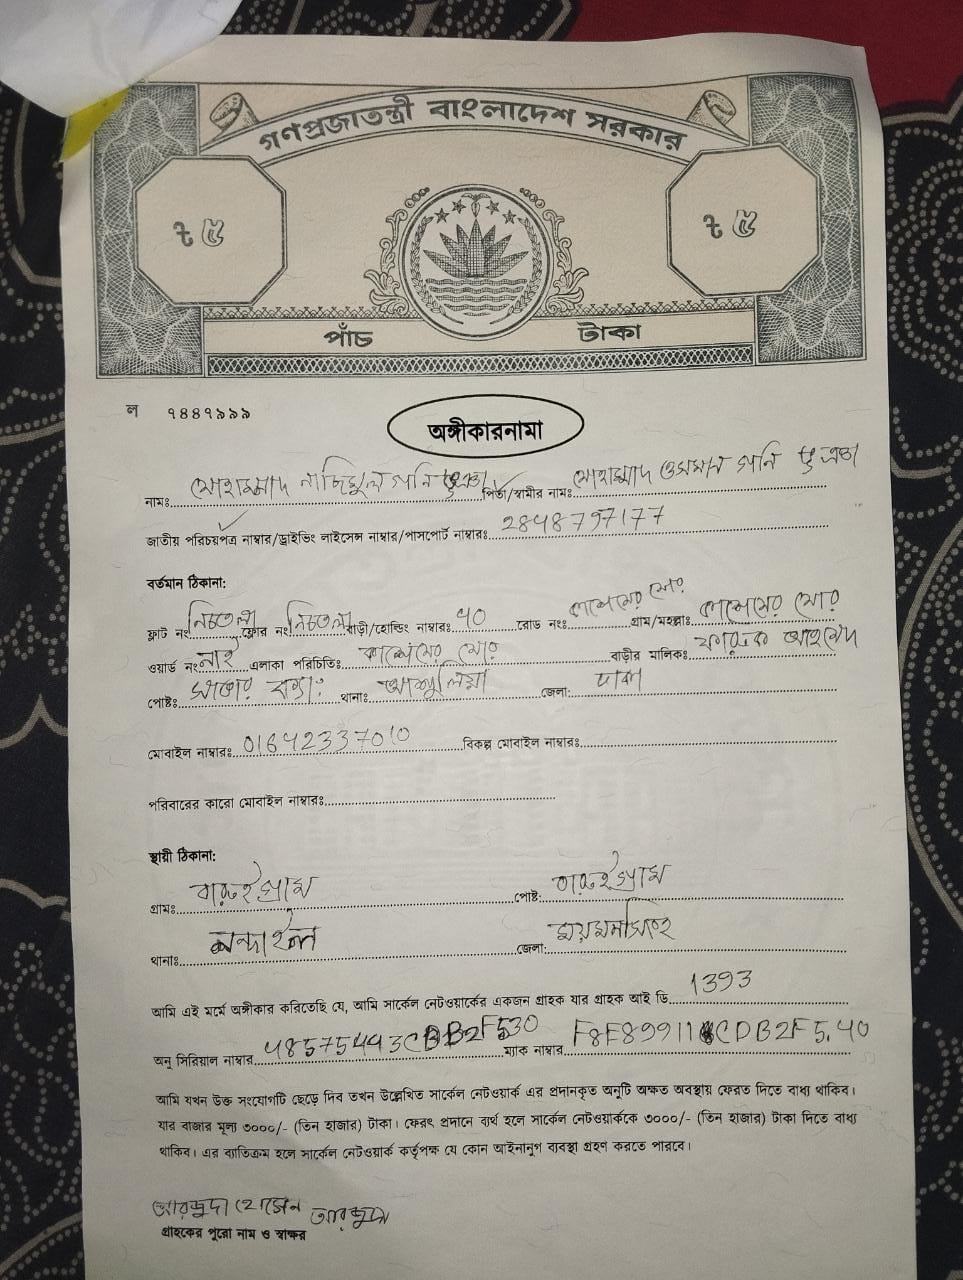 গণপ্রজাতন্ত্রী বাংলাদেশ সরকার
৳ ৫ ৳ ৫
পাঁচ টাকা
ল ৭৪৪৭৯৯৯
অঙ্গীকারনামা
নামঃ মোহাম্মাদ নাজিমুল গনি ভূঁঞা পিতা/স্বামীর নামঃ মোহাম্মাদ ওসমান গনি ভূঁঞা
জাতীয় পরিচয়পত্র নাম্বার/ড্রাইভিং লাইসেন্স নাম্বার/পাসপোর্ট নাম্বারঃ 2848797177
বর্তমান ঠিকানা:
ফ্লাট নং নিচতলা ফ্লোর নং নিচতলা বাড়ী/হোল্ডিং নাম্বারঃ ৭০ রোড নংঃ কাশেমের মোর গ্রাম/মহল্লাঃ কাশেমের মোর
ওয়ার্ড নংঃ নাই এলাকা পরিচিতিঃ কাশেমের মোর বাড়ীর মালিকঃ ফারুক আহমেদ
পোষ্টঃ থানাঃ আশুলিয়া জেলা: ঢাকা
মোবাইল নাম্বারঃ 01642337010 বিকল্প মোবাইল নাম্বারঃ
পরিবারের কারো মোবাইল নাম্বারঃ
স্থায়ী ঠিকানা:
গ্রামঃ বারুইগ্রাম পোষ্ট: বারুইগ্রাম
থানাঃ নান্দাইল জেলা: ময়মনসিংহ
আমি এই মর্মে অঙ্গীকার করিতেছি যে, আমি সার্কেল নেটওয়ার্কের একজন গ্রাহক যার গ্রাহক আই ডি 1393
অনু সিরিয়াল নাম্বার ম্যাক নাম্বার
আমি যখন উক্ত সংযোগটি ছেড়ে দিব তখন উল্লেখিত সার্কেল নেটওয়ার্ক এর প্রদানকৃত অনুটি অক্ষত অবস্থায় ফেরত দিতে বাধ্য থাকিব।
যার বাজার মূল্য ৩০০০/- (তিন হাজার) টাকা। ফেরৎ প্রদানে ব্যর্থ হলে সার্কেল নেটওয়ার্ককে ৩০০০/- (তিন হাজার) টাকা দিতে বাধ্য
থাকিব। এর ব্যতিক্রম হলে সার্কেল নেটওয়ার্ক কর্তৃপক্ষ যে কোন আইনানুগ ব্যবস্থা গ্রহণ করতে পারবে।
হোসেন
গ্রাহকের পুরো নাম ও স্বাক্ষর